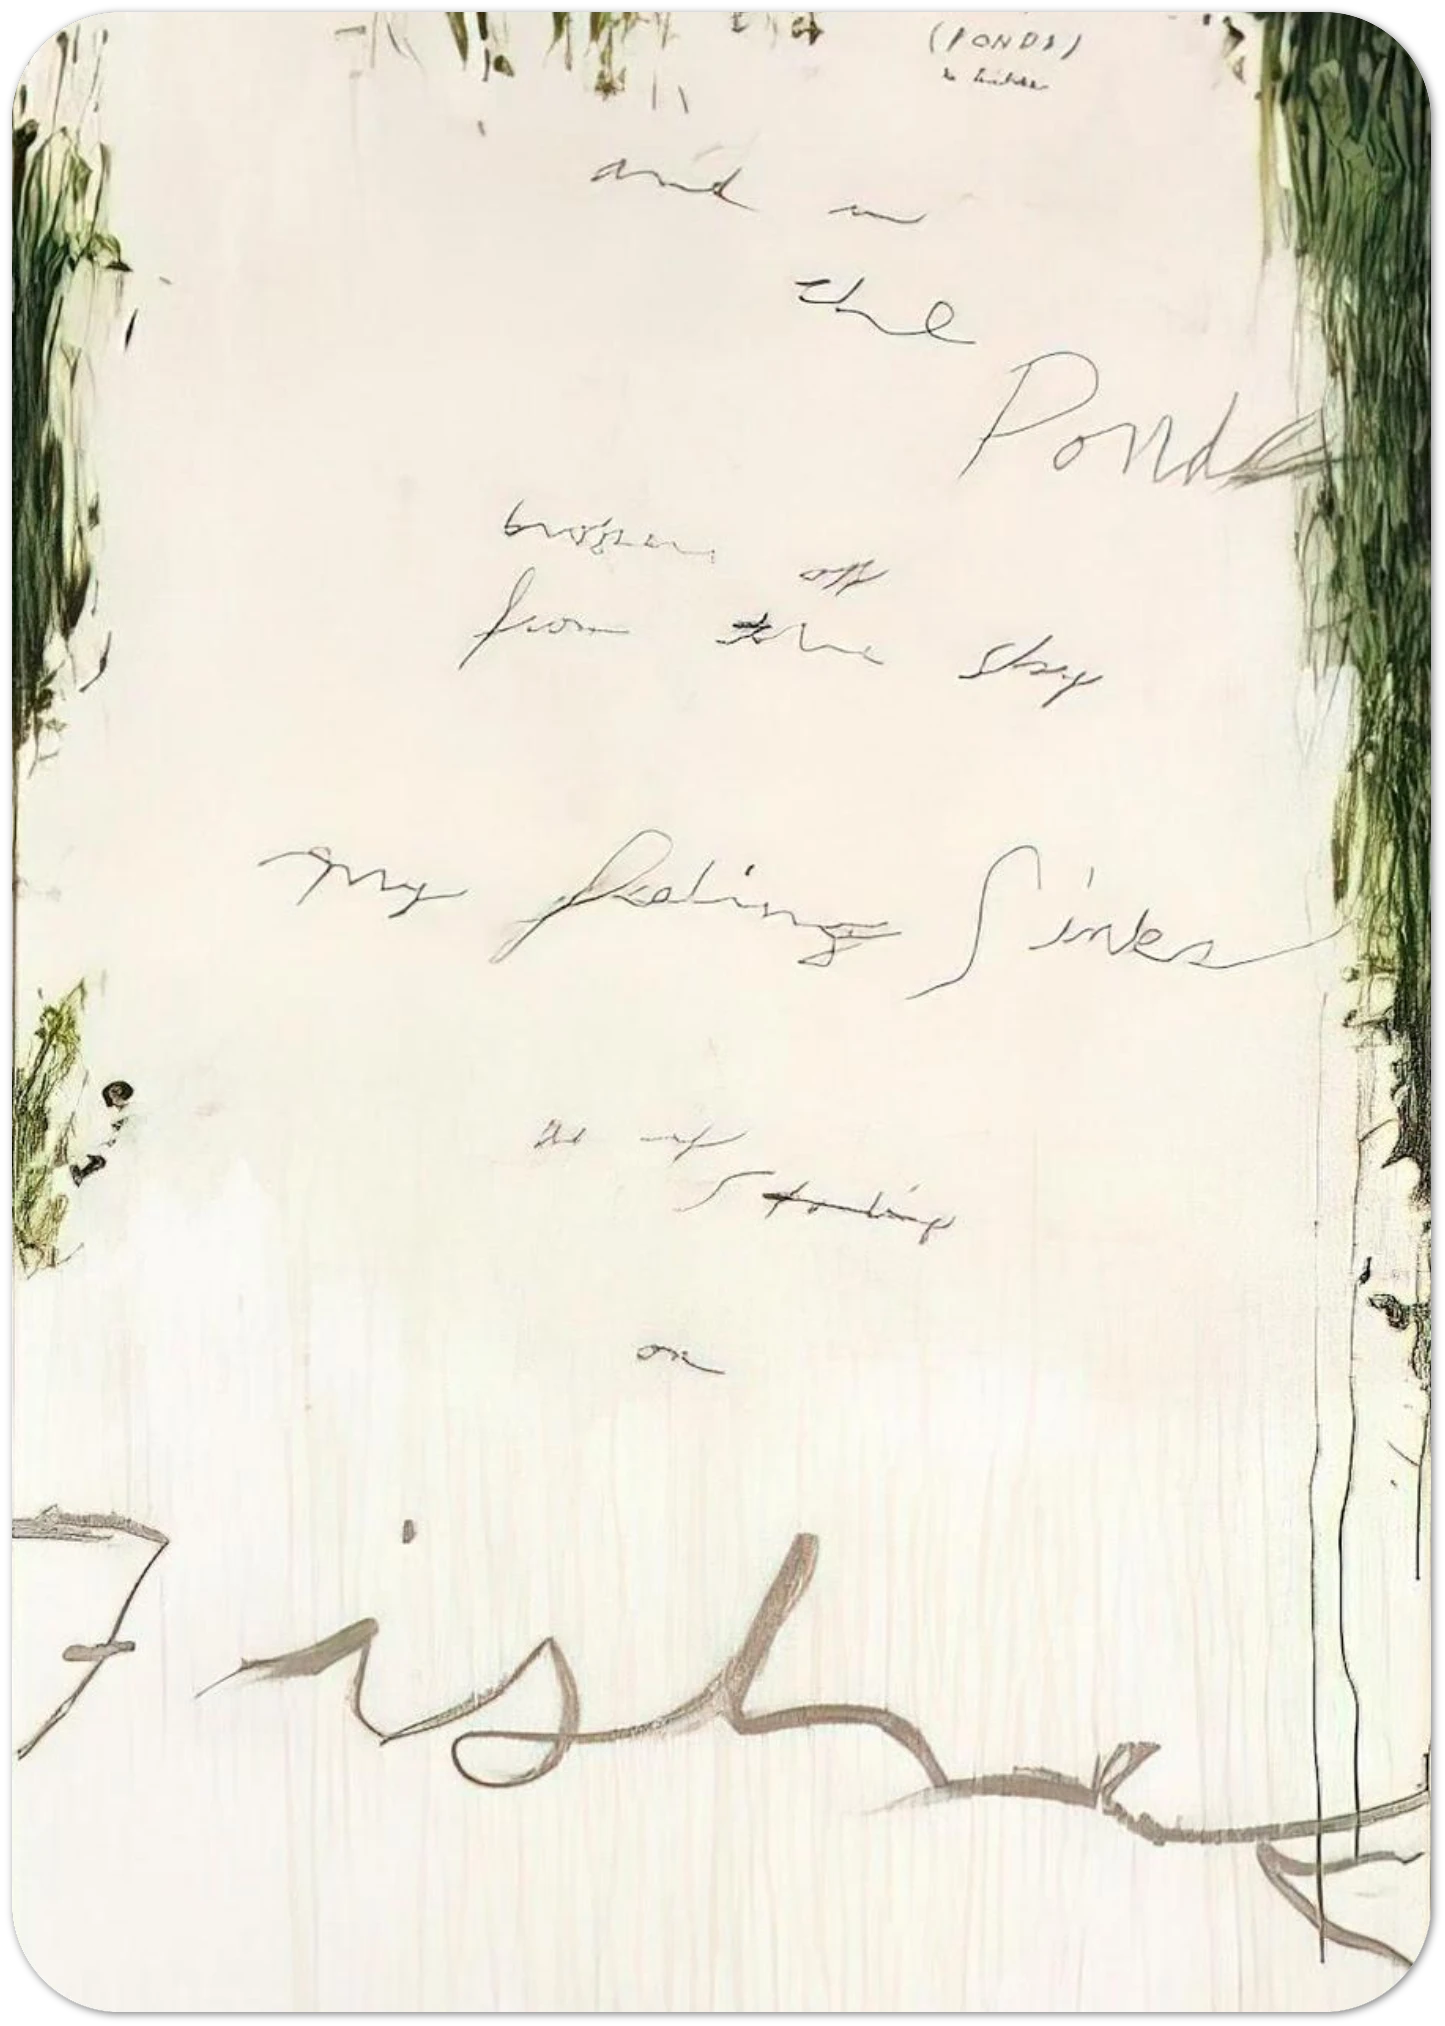 (PONDS)
and in
the
Ponds
broken off
from the sky
my feeling sinks
as if
standing
on
fishes